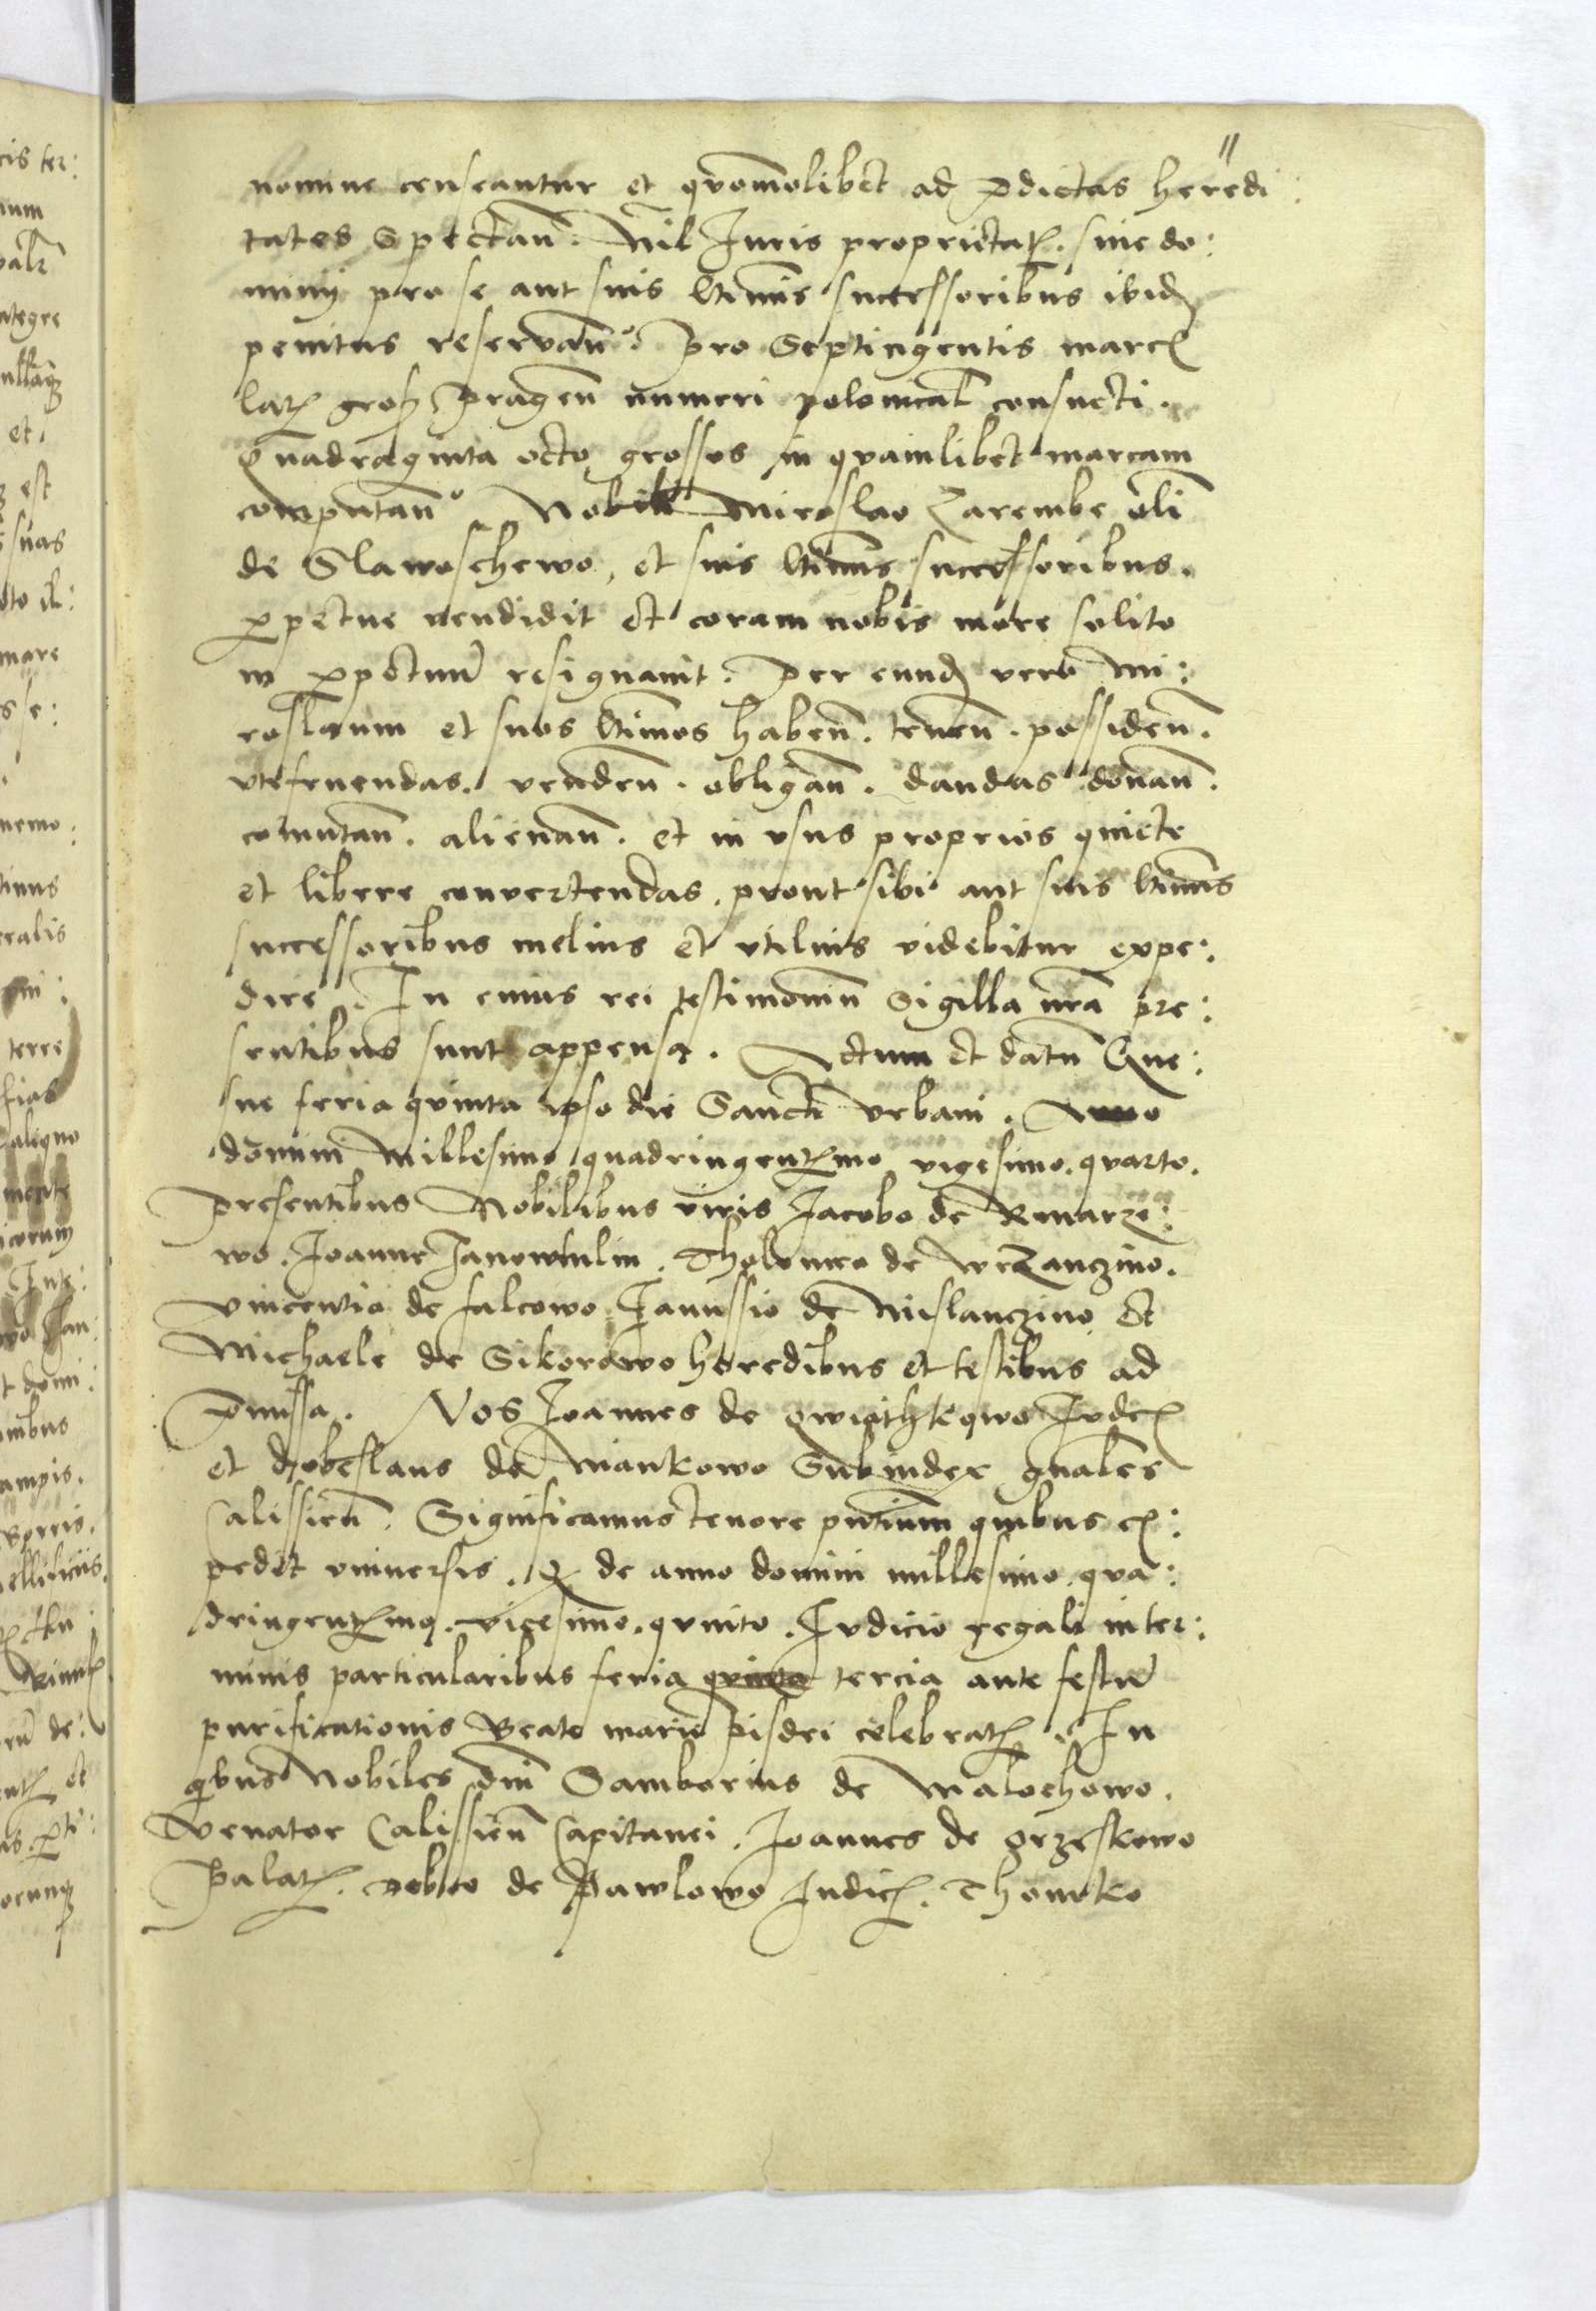 11
nomine censeantur et quom̄olibet ad p̄dictas heredi:
tates Spectan̄. Nil Iuris proprietat. siue do:
minij pro se aut suis l̄timis successoribus ibid
penitus reseruan̄o. Pro Septingentis marc
lat gros Pragen̄ numeri polonical consueti.
Quadraginta octo grossos in quamlibet marcam
computan̄o Nobili Miroslao Zarembe oli
de Slawoschewo, et suis l̄timis successoribus.
ꝑpetue uendidit et coram nobis more solito
in ꝑpetuū resignauit. Per eund vero Mi:
roslaum et suos l̄timos haben̄. tenen̄. possiden̄.
vtefruendas. venden̄. obligan̄. dandas donan̄.
com̄utan̄. alienan̄. et in vsus proprios quiete
et libere conuertendas. prout sibi aut suis l̄timis
successoribus melius et vtilius videbitur expe:
dire. In cuius rei testimoniū Sigilla nr̄a pre:
sentibus sunt appensa. Actum et datū Gne:
sne feria quinta ipso die Sancti Vrbani. Anno
domini Millesimo quadringentmo vigesimo. quarto.
Presentibus Nobilibus viris Jacobo de Rmarze:
wo. Joanne Janowtulin. Tholomeo de Wrzanczino.
Vincentio de falcowo Janussio de Mislanczino et
Michaele de Sikorowo heredibus et testibus ad
p̄missa. Nos Joannes de Qwiathkowo Iudex
et dobeslaus de Mankowo Subiudex gn̄ales
Calissien̄. Significamus tenore pn̄tium quibus ex:
pedit vniuersis. Qꝫ de anno domini millesimo. qua:
dringentmo. vicesimo. quinto. Iudicio regali in ter:
minis particularibus feria quinta tercia ante festū
purificationis Beate marie Pisdri celebrat. In
qbus Nobiles dn̄i Samborius de Malochowo.
Venator Calissien̄ Capitanei. Joannes de grzeskowo
Palat. de Pawlowo Iudic. Thomko